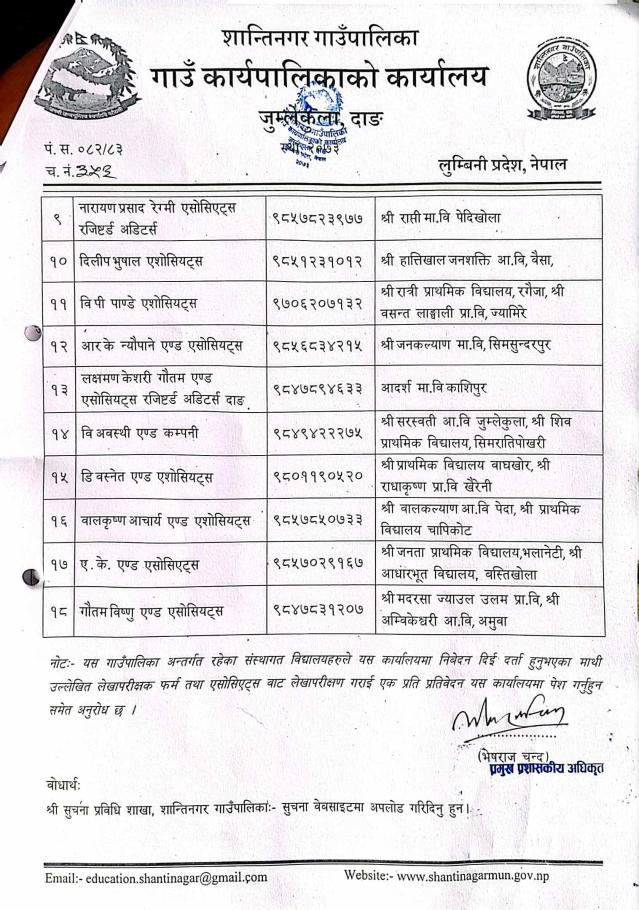 शान्तिनगर गाउँपालिका
गाउँ कार्यपालिकाको कार्यालय
जुम्लेकुला, दाङ
पं. स. ०८२/८३
च. नं. ३५६
लुम्बिनी प्रदेश, नेपाल
९ नारायण प्रसाद रेग्मी एसोसिएट्स रजिष्टर्ड अडिटर्स ९८५७८२३९७७ श्री राप्ती मा.वि पेदिखोला
१० दिलीप भुषाल एशोसियट्स ९८५१२३१०१२ श्री हात्तिखाल जनशक्ति आ.वि, वैसा,
११ वि पी पाण्डे एशोसियट्स ९७०६२०७१३२ श्री रात्री प्राथमिक विद्यालय, रगैजा, श्री वसन्त लाङ्गाली प्रा.वि, ज्यामिरे
१२ आर के न्यौपाने एण्ड एसोसियट्स ९८५६८३४२१५ श्री जनकल्याण मा.वि, सिमसुन्दरपुर
१३ लक्षमण केशरी गौतम एण्ड एसोसियट्स रजिष्टर्ड अडिटर्स दाङ ९८४७८९४६३३ आदर्श मा.वि काशिपुर
१४ वि अवस्थी एण्ड कम्पनी ९८४९४२२२७५ श्री सरस्वती आ.वि जुम्लेकुला, श्री शिव प्राथमिक विद्यालय, सिमरातिपोखरी
१५ डि वस्नेत एण्ड एशोसियट्स ९८०११९०५२० श्री प्राथमिक विद्यालय वाघखोर, श्री राधाकृष्ण प्रा.वि खैरेनी
१६ वालकृष्ण आचार्य एण्ड एशोसियट्स ९८५७८५०७३३ श्री वालकल्याण आ.वि पेदा, श्री प्राथमिक विद्यालय चापिकोट
१७ ए. के. एण्ड एसोसिएट्स ९८५७०२९१६७ श्री जनता प्राथमिक विद्यालय,भलानेटी, श्री आधारभूत विद्यालय, वस्तिखोला
१८ गौतम विष्णु एण्ड एसोसियट्स ९८४७८३१२०७ श्री मदरसा ज्याउल उलम प्रा.वि, श्री अम्विकेश्वरी आ.वि, अमुवा
नोटः- यस गाउँपालिका अन्तर्गत रहेका संस्थागत विद्यालयहरुले यस कार्यालयमा निवेदन दिई दर्ता हुनुभएका माथी
उल्लेखित लेखापरीक्षक फर्म तथा एसोसिएट्स बाट लेखापरीक्षण गराई एक प्रति प्रतिवेदन यस कार्यालयमा पेश गर्नुहुन
समेत अनुरोध छ ।
(भेषराज चन्द)
प्रमुख प्रशासकीय अधिकृत
वोधार्थः
श्री सुचना प्रविधि शाखा, शान्तिनगर गाउँपालिकाः- सुचना वेवसाइटमा अपलोड गरिदिनु हुन।
Email:- education.shantinagar@gmail.com Website:- www.shantinagarmun.gov.np